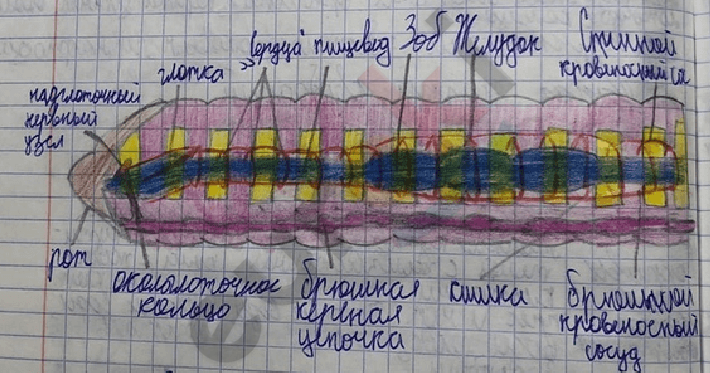 глотка
"Сердца"
пищевод
Зоб
Желудок
Спинной
кровеносный со
надглоточный
нервный
узел
рот
окологлоточное
кольцо
брюшная
нервная
цепочка
брюшной
кровеносный
сосуд